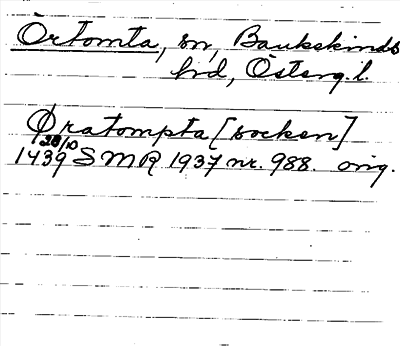 Örtomta, sn, Bankekinds
hd, Östergl.
Øratompta [socken]
28/10
1439 SMR 1937 nr. 988. orig.